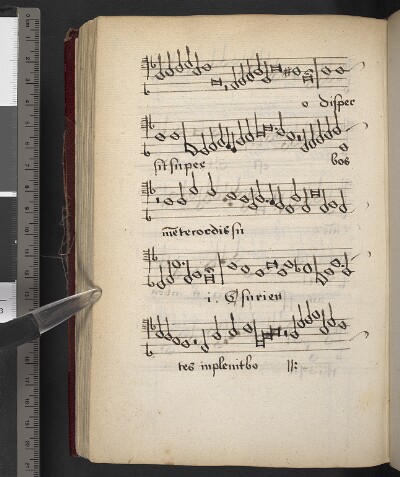 o disper
sit super bos
mēte cordis su
i. Esurien
tes inplenit bo ij: